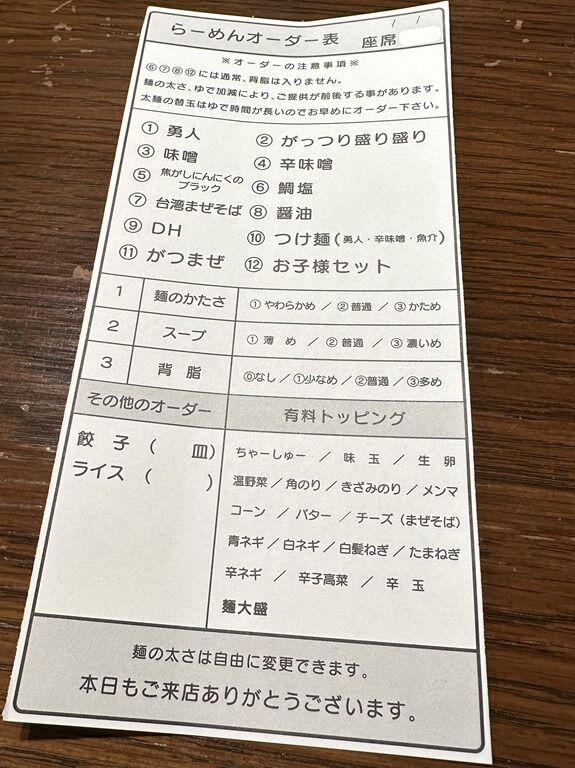 / /
らーめんオーダー表 座席
※オーダーの注意事項※
⑥⑦⑧⑫には通常、背脂は入りません。
麺の太さ、ゆで加減により、ご提供が前後する事があります。
太麺の替玉はゆで時間が長いのでお早めにオーダー下さい。
① 勇人 ② がっつり盛り盛り
③ 味噌 ④ 辛味噌
⑤ 焦がしにんにくのブラック ⑥ 鯛塩
⑦ 台湾まぜそば ⑧ 醤油
⑨ DH ⑩ つけ麺(勇人・辛味噌・魚介)
⑪ がつまぜ ⑫ お子様セット
1 麺のかたさ ① やわらかめ / ② 普通 / ③ かため
2 スープ ① 薄 め / ② 普通 / ③ 濃いめ
3 背 脂 ⓪なし / ①少なめ / ②普通 / ③多め
その他のオーダー 有料トッピング
餃 子 ( 皿)
ライス ( )
ちゃーしゅー / 味 玉 / 生 卵
温野菜 / 角のり / きざみのり / メンマ
コーン / バター / チーズ(まぜそば)
青ネギ / 白ネギ / 白髪ねぎ / たまねぎ
辛ネギ / 辛子高菜 / 辛 玉
麺大盛
麺の太さは自由に変更できます。
本日もご来店ありがとうございます。